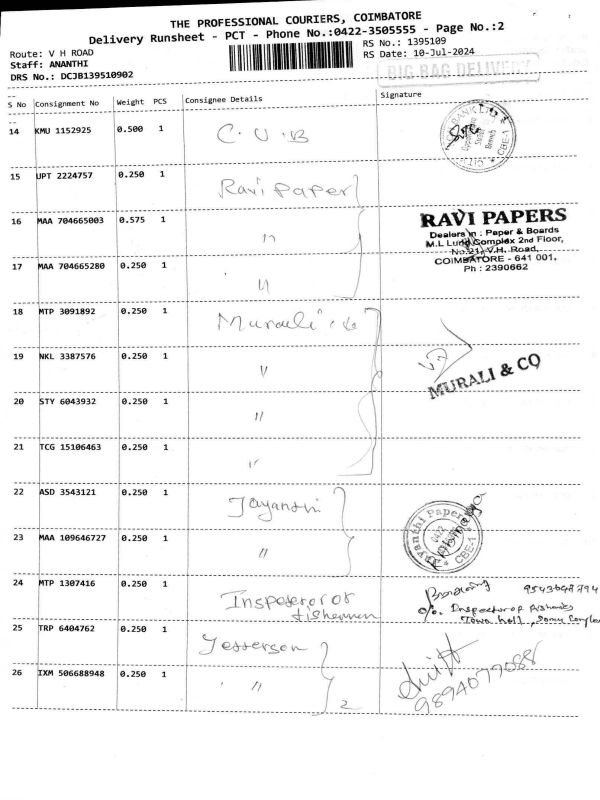 THE PROFESSIONAL COURIERS, COIMBATORE
Delivery Runsheet - PCT - Phone No.:0422-3505555 - Page No.:2
Route: V H ROAD
RS No.: 1395109
Staff: ANANTHI
RS Date: 10-Jul-2024
DRS No.: DCJB139510902
BIG BAG DELIVERY
S No Consignment No Weight PCS Consignee Details Signature
14 KMU 1152925 0.500 1 C.U.B
CBE-1
15 UPT 2224757 0.250 1 Ravi Paper
16 MAA 704665003 0.575 1 "
RAVI PAPERS
Dealers in : Paper & Boards
M.L Complex 2nd Floor,
No.21, V.H. Road,
COIMBATORE - 641 001.
Ph : 2390662
17 MAA 704665280 0.250 1 "
18 MTP 3091892 0.250 1 Murali
19 NKL 3387576 0.250 1 "
MURALI & CO
20 STY 6043932 0.250 1 "
21 TCG 15106463 0.250 1 "
22 ASD 3543121 0.250 1 Jayanthi
Jayanthi Paper
0422
CBE-1
23 MAA 109646727 0.250 1 "
24 MTP 1307416 0.250 1 Inspector of
fishermen
9543648794
c/o. Inspector of Fisheries
Town hall,
25 TRP 6404762 0.250 1 Jefferson
26 IXM 506688948 0.250 1 "
2
9894077088